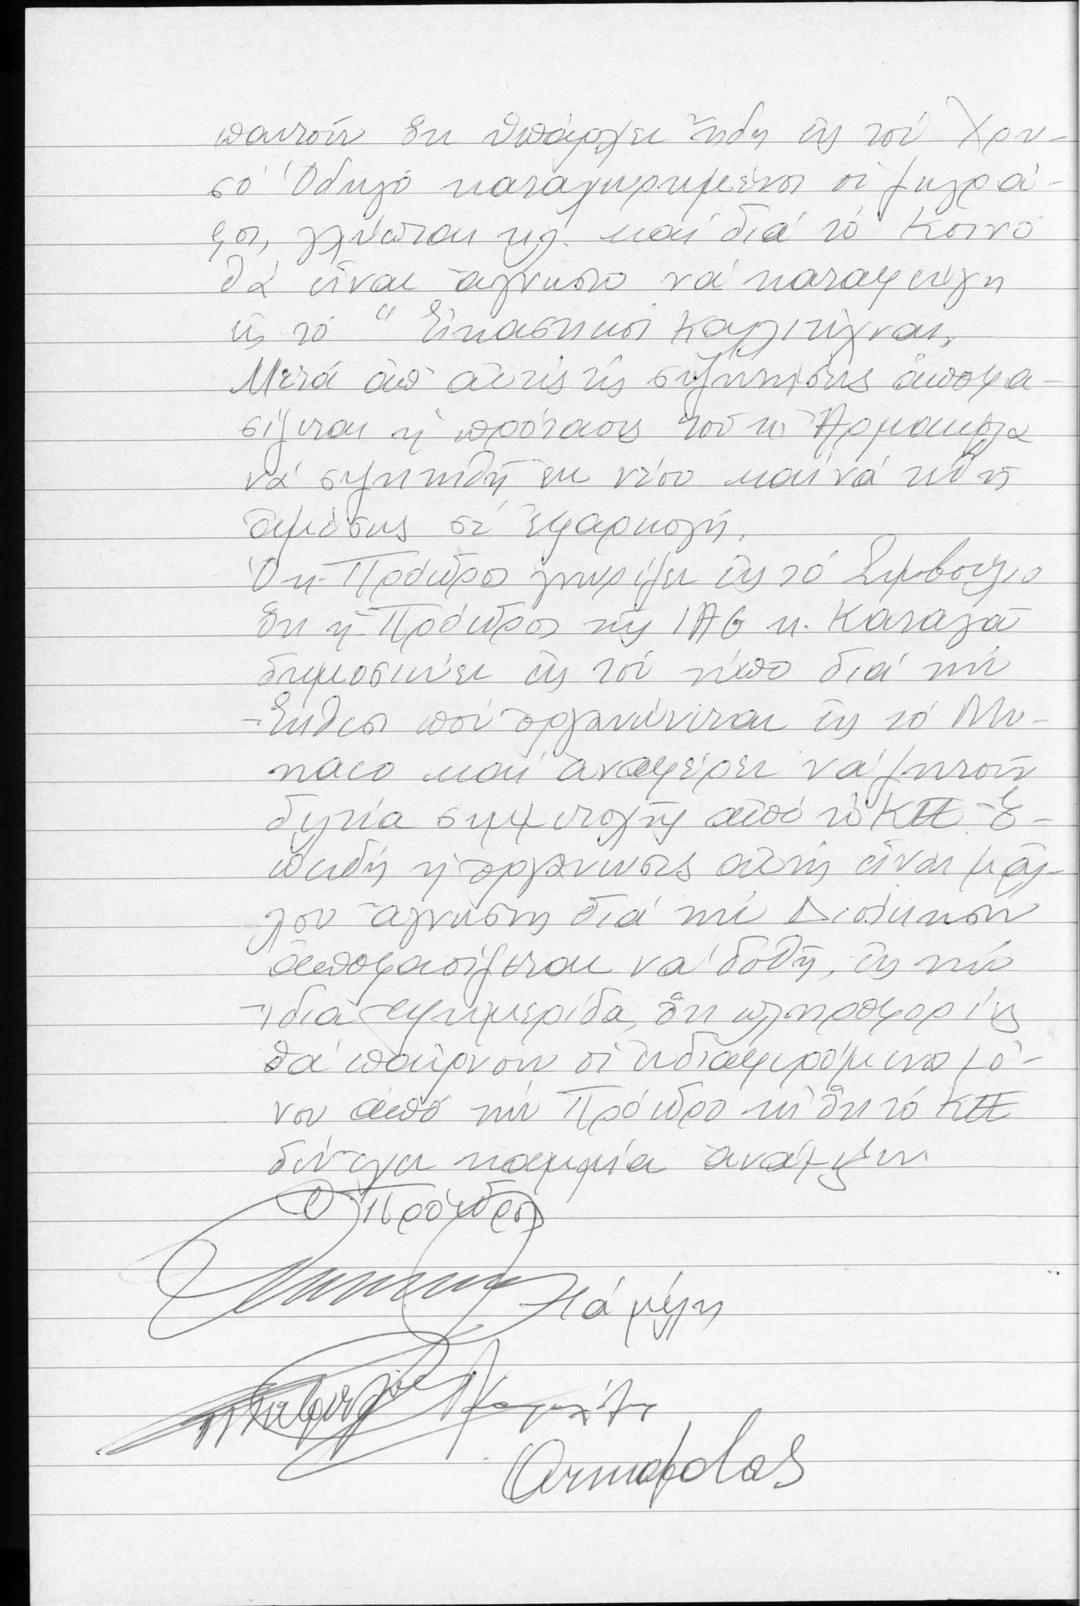 παντοῦν ὅτι ὑπάρχει ἤδη εἰς τόν Χρυ-
σό Ὁδηγό καταχωρημένοι οἱ ζωγρά-
φοι, γλύπται κλ. καί διά τό Κοινό
θά εἶναι ἄγνωστο νά καταφεύγη
εἰς τό "Εἰκαστικοί Καλλιτέχναι.
Μετά ἀπ' αὐτές τίς συζητήσεις ἀποφα-
σίζεται ἡ πρότασις τοῦ κ. Ἀρμακόλα
νά συζητηθῆ ἐκ νέου καί νά τεθῆ
ἀμέσως σέ ἐφαρμογή.
Ὁ κ. Πρόεδρος γνωρίζει εἰς τό Συμβούλιο
ὅτι ἡ Πρόεδρος τῆς ΙΑΘ κ. Καταγᾶ
δημοσιεύει εἰς τόν τύπο διά τήν
Ἔκθεσι πού ὀργανώνεται εἰς τό Μο-
νακο καί ἀναφέρει νά ζητοῦν
δελτία συμμετοχῆς ἀπό τό ΚΕΕ. Ἐ-
πειδή ἡ ὀργάνωσις αὐτή εἶναι μᾶλ-
λον ἄγνωστη διά τήν Διοίκησιν
ἀποφασίζεται νά δοθῆ, εἰς τήν
ἴδια ἐφημερίδα, ὅτι πληροφορίες
θά παίρνουν οἱ ἐνδιαφερόμενοι μό-
νον ἀπό τήν Πρόεδρο της ὅτι τό ΚΕΕ
δέν ἔχει καμμία ἀνάμιξιν
Ὁ Πρόεδρος
Τά μέλη
Armakolas